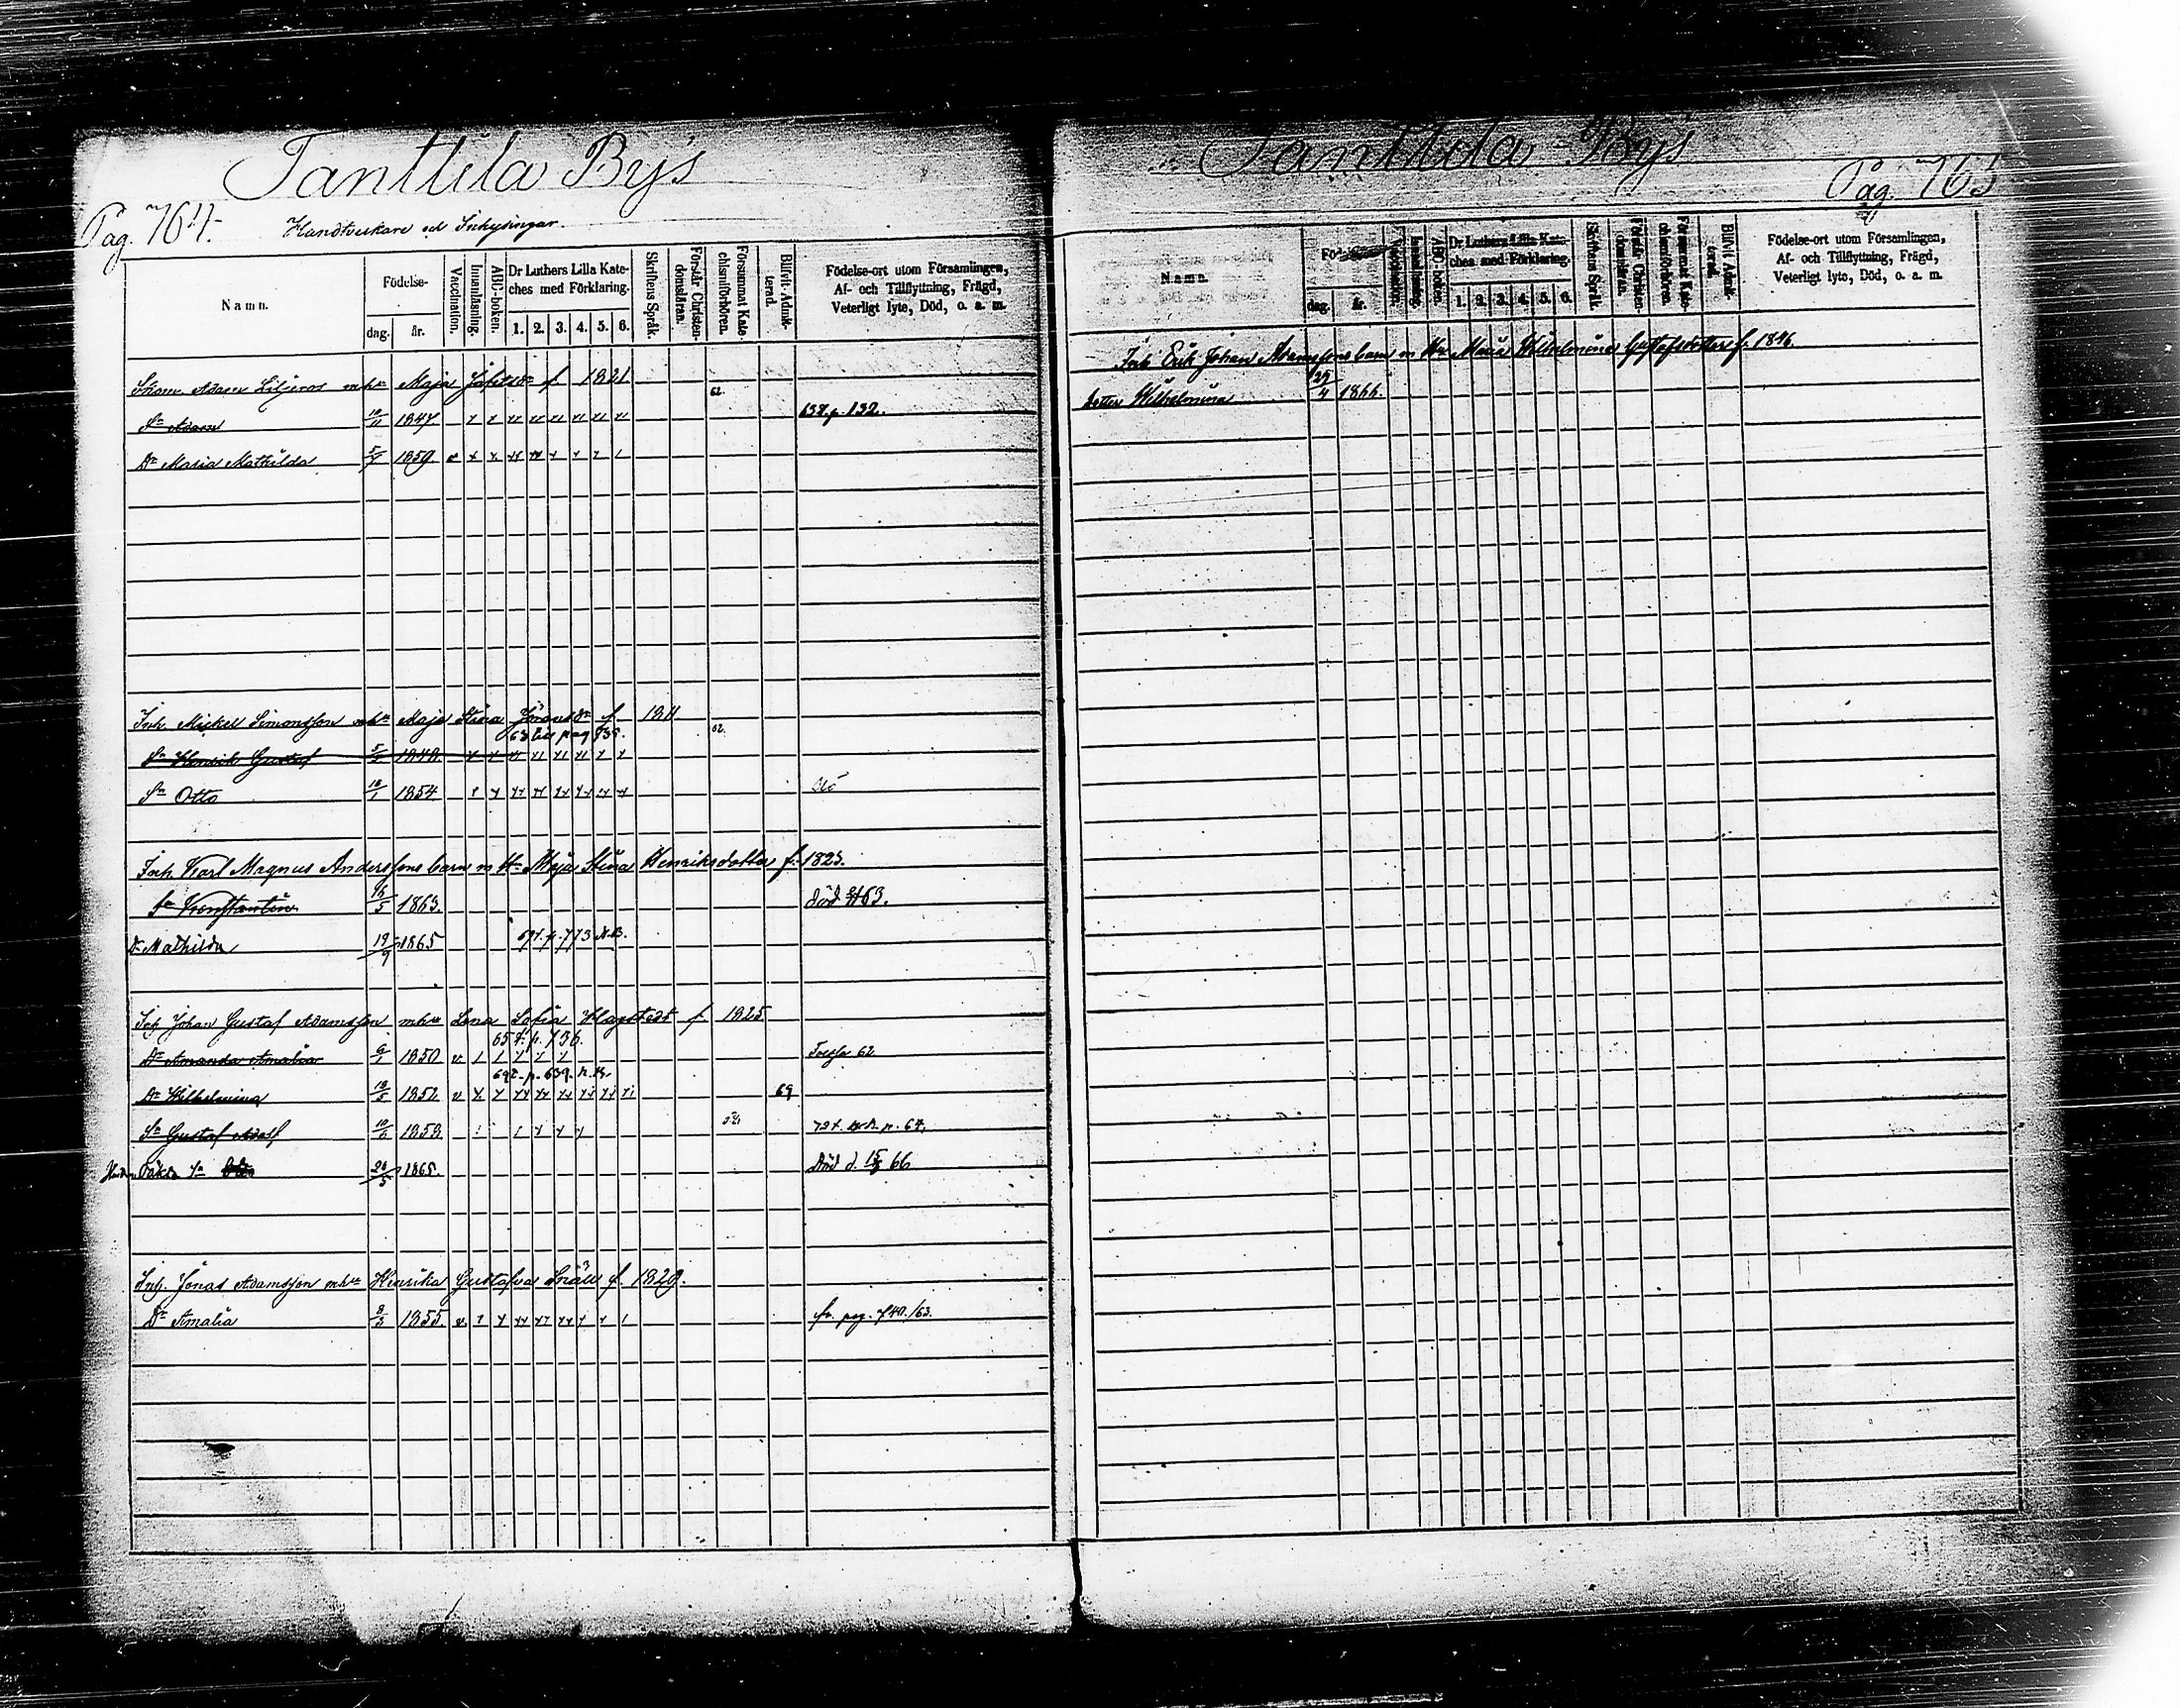 Tanttila By's
Pag. 764.
Handtverkare och Inhysingar.
Namn.
Födelse-
dag.
år.
Vaccination.
Innanläsning.
ABC-boken.
Dr Luthers Lilla Kate-
ches med Förklaring.
1. 2. 3. 4. 5. 6.
Skriftens Språk.
Förstår Christen-
domsläran.
Försummat Kate-
chismiförhören.
Blifvit Admit-
terad.
Födelse-ort utom Församlingen,
Af- och Tillflyttning, Frägd,
Veterligt lyte, Död, o. a. m.
Skom. Adam Liljeros mhu Maja Jofetsdr f. 1821
62.
Sn Adam 10/11 1847 658. p. 132.
Dr Maria Mathilda 5/7 1850. v
Inh. Mickel Simonsson mhu Maja Stina Jöransdr f. 1811
62.
Sn Henrik Gustaf 1848.
Sn Otto 18/1 1854
Inh. Karl Magnus Anderssons barn m Hu Maja Stina Henriksdotter f. 1823.
Sn Konstantin 1863. död 63.
Dr Mathilda 19/9 1865 p. 773 N.B.
Inh Johan Gustaf Adamsson mhu Lena Sofia Hagstedt f. 1825
65 t. p. 756.
Dr Amanda Amalia 6/1 1850 v 62
69 t. p. 639. n. B.
Dr Wilhelmina 18/5 1852. v 69
Sn Gustaf Adolf 10/6 1858 p. 67.
Sn 26/5 1865. Död d. 66
Inh. Jonas Adamsson mhu Henrika Gustafva Snäll f. 1829.
Dr Amalia 8/5 1855. v fr. pag. 740./63.
Tanttila By's
Pag. 765
Namn.
dag.
år.
Vaccination.
Innanläsning.
ABC-boken.
Dr Luthers Lilla Kate-
ches med Förklaring.
1. 2. 3. 4. 5. 6.
Skriftens Språk.
Förstår Christen-
domsläran.
Försummat Kate-
chismiförhören.
Blifvit Admit-
terad.
Födelse-ort utom Församlingen,
Af- och Tillflyttning, Frägd,
Veterligt lyte, Död, o. a. m.
Inh. Erik Johan Adamssons barn m Hu Maria Wilhelmina Gustafsdotter f. 1846.
dotter Wilhelmina 29/4 1866.